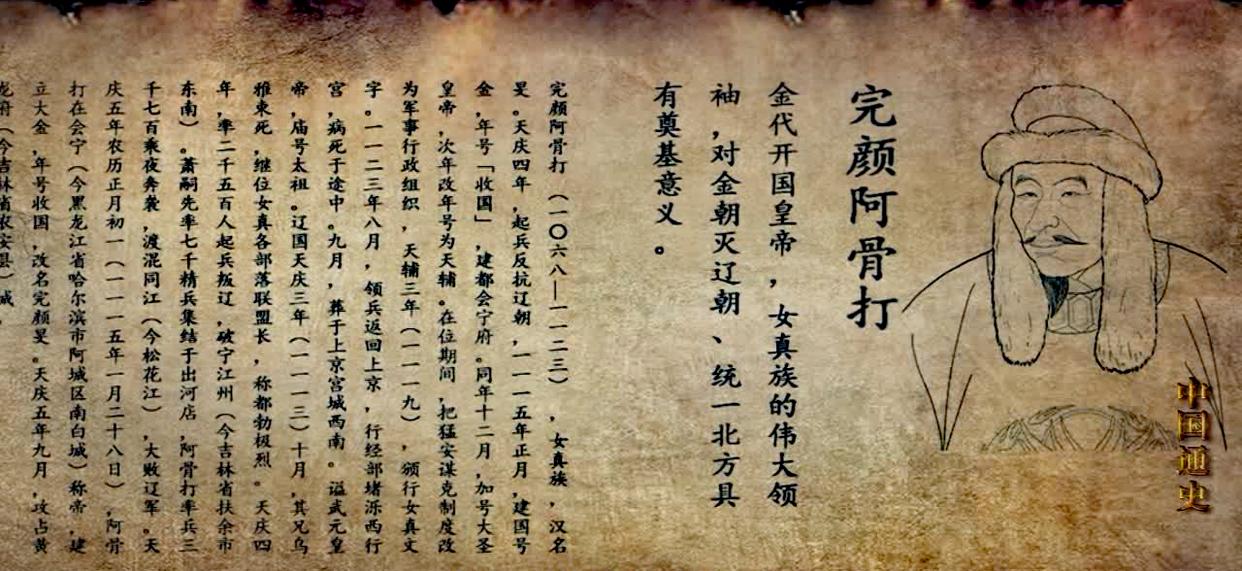 中国通史
完颜阿骨打
金代开国皇帝，女真族的伟大领
袖，对金朝灭辽朝、统一北方具
有奠基意义。
完颜阿骨打（一〇六八—一一二三），女真族，汉名
旻。天庆四年，起兵反抗辽朝，一一一五年正月，建国号
金，年号「收国」，建都会宁府。同年十二月，加号大圣
皇帝，次年改年号为天辅。在位期间，把猛安谋克制度改
为军事行政组织，天辅三年（一一一九），颁行女真文
字。一一二三年八月，领兵返回上京，行经部堵泺西行
宫，病死于途中。九月，葬于上京宫城西南。谥武元皇
帝，庙号太祖。辽国天庆三年（一一一三）十月，其兄乌
雅束死，继位女真各部落联盟长，称都勃极烈。天庆四
年，率二千五百人起兵叛辽，破宁江州（今吉林省扶余市
东南）。萧嗣先率七千精兵集结于出河店，阿骨打率兵三
千七百乘夜奔袭，渡混同江（今松花江），大败辽军。天
庆五年农历正月初一（一一一五年一月二十八日），阿骨
打在会宁（今黑龙江省哈尔滨市阿城区南白城）称帝，建
立大金，年号收国，改名完颜旻。天庆五年九月，攻占黄
龙府（今吉林省农安县）城，